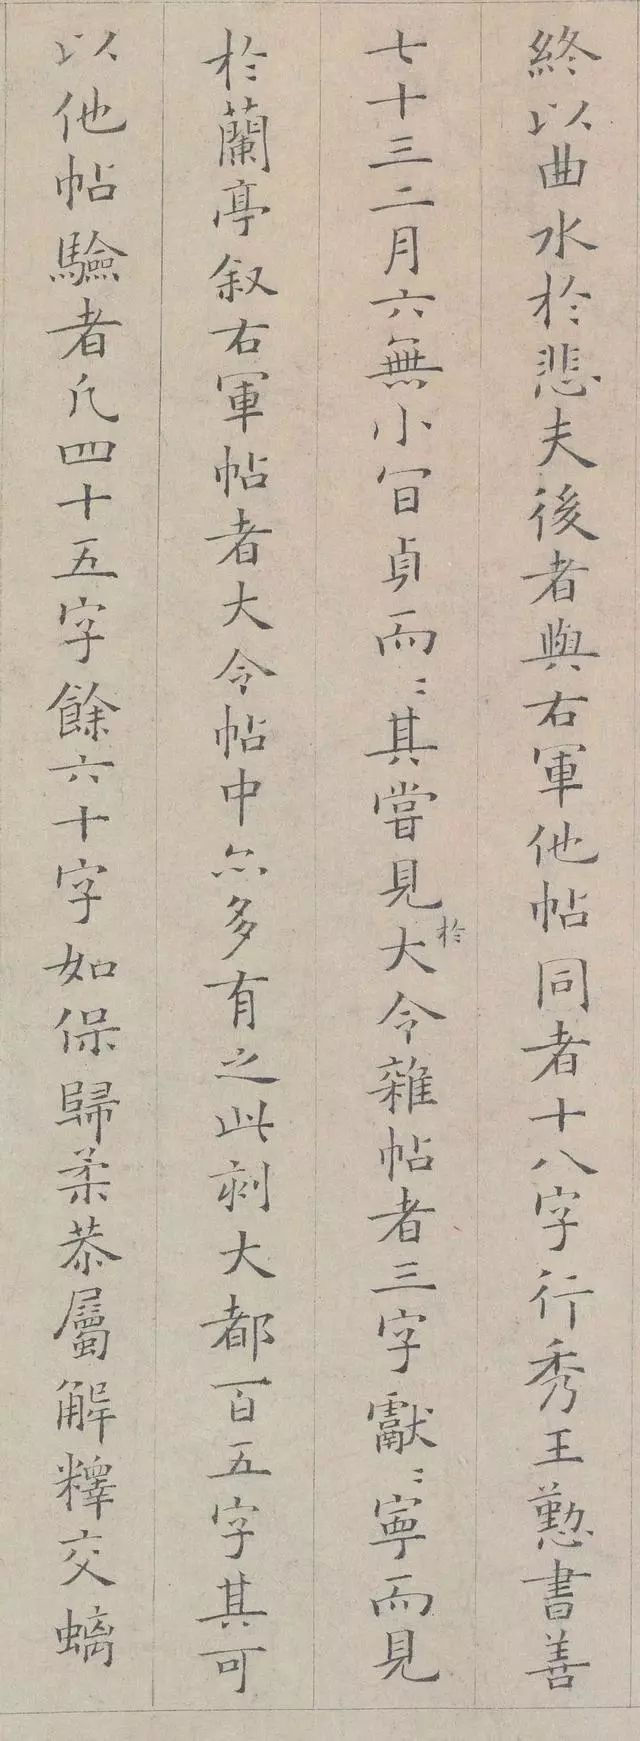 終以曲水於悲夫後者與右軍他帖同者十八字行秀王懃書善
七十三二月六無小官貞而〻其嘗見於大令雜帖者三字獻〻寧而見
於蘭亭叙右軍帖者大令帖中亦多有之此刻大都百五字其可
以他帖驗者凡四十五字餘六十字如保歸柔恭屬解釋交螭